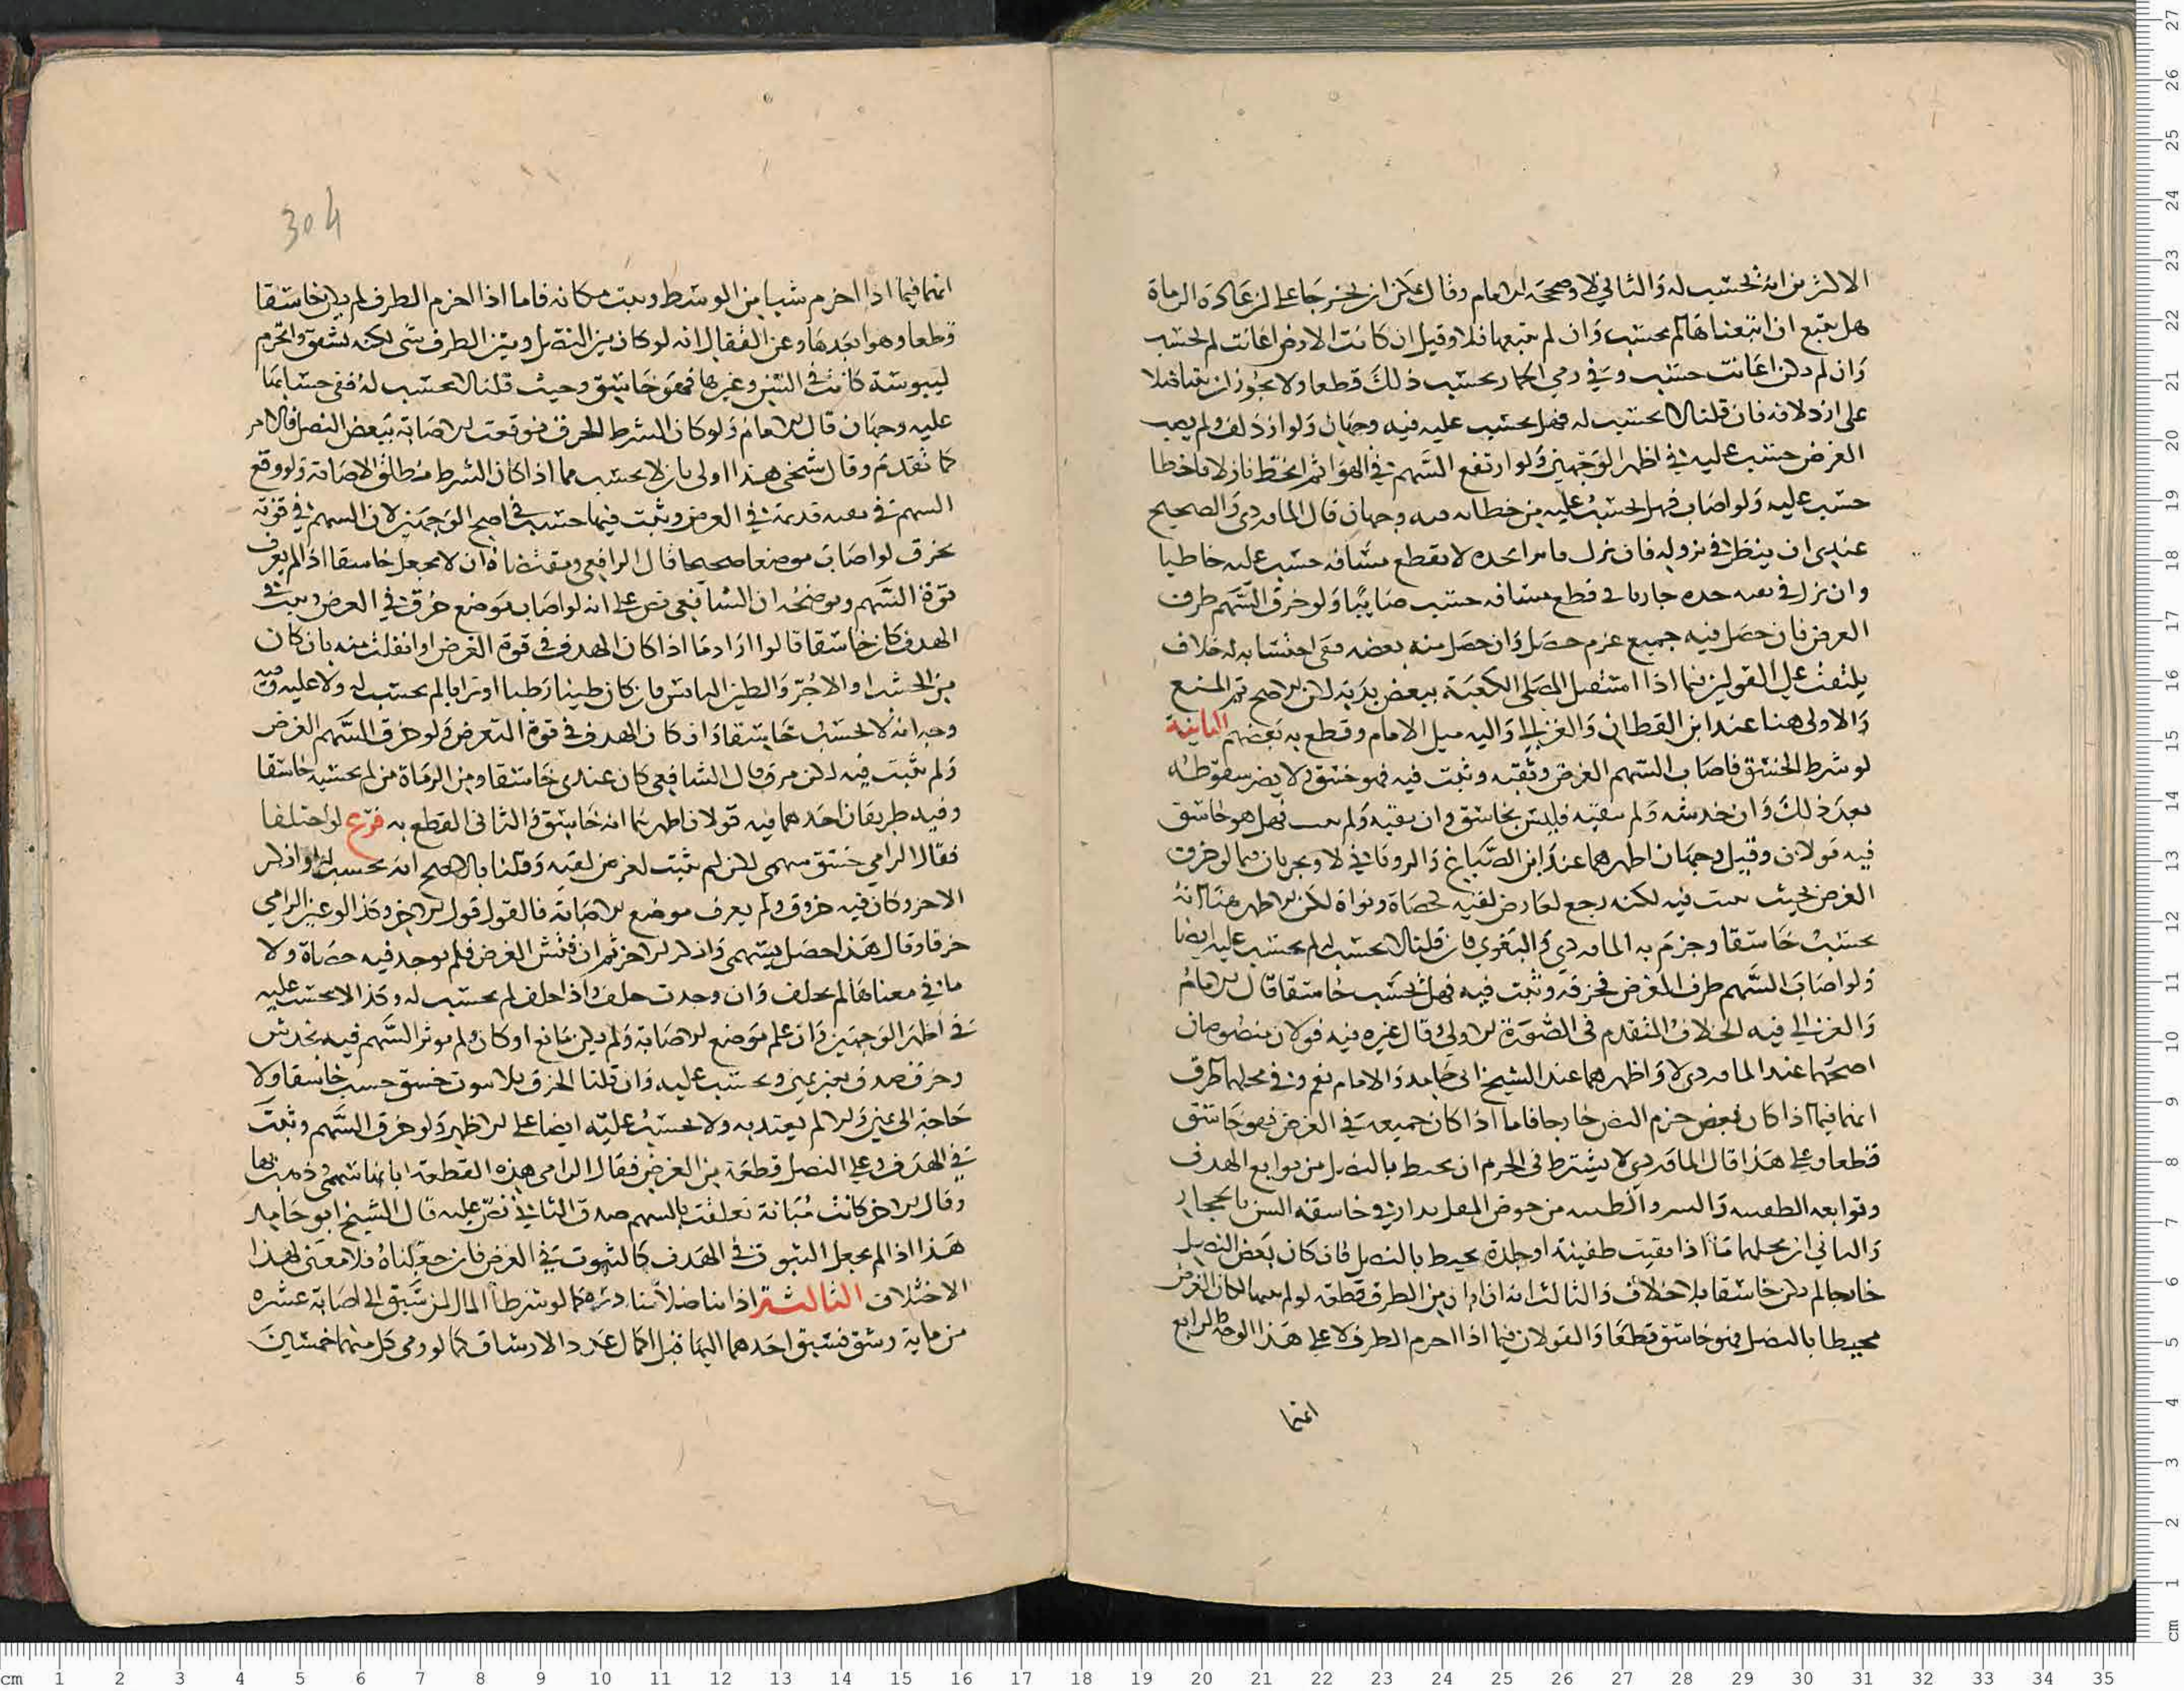 الاكثرين انه تحتسب له والثاني لا وصححه الامام وقال يمكن ان يخرجا على ان عادة الرماة
هل تتبع ان اتبعناها لم يحتسب وان لم نتبعها فلا وقيل ان كانت الارض اعانت لم تحتسب
وان لم يكن اعانت حسب وفي رمي الجمار يحتسب ذلك قطعا ولا يجوز ان يتناضلا
على ازدلافه فان قلنا لا يحتسب له فهل يحتسب عليه فيه وجهان ولو ازدلف ولم يصب
الغرض حسب عليه في اظهر الوجهين ولو ارتفع السهم في الهواء ثم انحط نازلا فاخطا
حسب عليه ولو اصاب فهل يحتسب عليه من خطائه فيه وجهان قال الماوردي والصحيح
عندي ان ينظر في نزوله فان نزل فاترا لحده لا يقطع مسافة حسب عليه خاطيا
وان نزل في بقية حده جاريا في قطع مسافة حسب صايبا ولو خرق السهم طرف
الغرض فان حصل فيه جميع عزم حصل وان حصل منه بعضه ففي احتسابه له خلاف
يلتفت على القولين فيما اذا استقبل المصلى الكعبة ببعض بدنه لان الاصح ثم المنع
والاولى هنا عند ابن القطان والغزالي واليه ميل الامام وقطع به بعضهم الثانية
لو شرط الخسق فاصاب السهم الغرض وثقبه وثبت فيه فهو خسق ولا يضر سقوطه
بعد ذلك وان خدشه ولم يثقبه فليس بخاسق وان ثقبه ولم يثبت فهل هو خاسق
فيه قولان وقيل وجهان اظهرهما عند ابن الصباغ والروياني لا ويجريان فيما لو خرق
الغرض بحيث يثبت فيه لكنه رجع لعارض لقيه لحصاة ونواة لكن الاظهر هنا انه
يحتسب خاسقا وجزم به الماوردي والبغوي فان قلنا لا يحتسب له لم يحتسب عليه ايضا
ولو اصاب السهم طرف الغرض فخرقه وثبت فيه فهل يحتسب خاسقا قال الامام
والغزالي فيه الخلاف المتقدم في الصورة الاولى وقال غيره فيه قولان منصوصان
اصحهما عند الماوردي لا واظهرهما عند الشيخ ابي حامد والامام نعم وفي محلهما طرق
انهما فيما اذا كان بعض جرم النصل خارجا فاما اذا كان جميعه في الغرض فهو خاسق
قطعا وعلى هذا قال الماوردي لا يشترط في الجرم ان يحيط بالنصل من توابع الهدف
وتوابعه
والثاني ان محلهما ما اذا بقيت طفيئة او جلدة يحيط بالنصل فان كان بعض النصل
خارجا لم يكن خاسقا بلا خلاف والثالث انه ان ابان من الطرف قطعة لو لم يبنها لكان الغرض
محيطا بالنصل فهو خاسق قطعا والقولان فيما اذا اخرم الطرف لا على هذا الوجه الرابع
انهما
304
انهما فيما اذا اخرم شيا من الوسط وثبت مكانه فاما اذا اخرم الطرف لم يكن خاسقا
قطعا وهو ابعدها وعن القفال انه لو كان بين النصل وبين الطرف شي لكنه تشقق وانخرم
ليبوسة كانت في الشن وغيرها فهو خاسق وحيث قلنا لا يحتسب له ففي حسابنا
عليه وجهان قال الامام ولو كان الشرط الخرق فوقعت الاصابة ببعض النصل فالامر
كما تقدم وقال شيخي هذا اولى بان لا يحتسب مما اذا كان الشرط مطلق الاصابة ولو وقع
السهم في ثقبة قديمة في الغرض وثبت فيها حسب في اصح الوجهين لان السهم في قوته
يخرق لو اصاب موضعا صحيحا قال الرافعي ومقتضاه ان لا يجعل خاسقا اذا لم يعرف
قوة السهم ويوضحه ان الشافعي نص على انه لو اصاب موضع خرق في الغرض وثبت في
الهدف كان خاسقا قالوا اراد ما اذا كان الهدف في قوة الغرض او انفلت منه بان كان
من الخشب او الاجر والطين اليابس فان كان طينا رطبا او ترابا لم يحتسب له ولا عليه وفيه
وجه انه لا يحتسب خاسقا وان كان الهدف في قوة الغرض ولو خرق السهم الغرض
ولم يثبت فيه لكن مرق قال الشافعي كان عندي خاسقا ومن الرماة من لم يحتسبه خاسقا
وفيه طريقان احدهما فيه قولان اظهرهما انه خاسق والثاني القطع به فرع لو اختلفا
فقال الرامي خسق سهمي لكن لم يثبت لعرض لقيه وقلنا بالاصح انه يحتسب له وانكر
الاخر وكان فيه خروق ولم يعرف موضع الاصابة فالقول قول الاخر وكذا لو عين الرامي
خرقا وقال هذا حصل بسهمي وانكر الاخر ثم ان فتش الغرض فلم يوجد فيه حصاة ولا
ما في معناها لم يحلف وان وجدت حلف واذا حلف لم يحتسب له وكذا لا يحتسب عليه
في اظهر الوجهين وان علم موضع الاصابة ولم يكن مانع او كان ولم يوثر السهم فيه بخدش
وخرق صدق بغير يمين ويحتسب عليه وان قلنا الخرق بلا ثبوت خسق حسب خاسقا ولا
حاجة الى يمين والا لم يعتد به ولا يحتسب عليه ايضا على الاظهر ولو خرق السهم وثبت
في الهدف وعلى النصل قطعة من الغرض فقال الرامي هذه القطعة ابانها سهمي وذهب بها
وقال الاخر كانت مبانة تعلقت بالسهم صدق الثاني نص عليه قال الشيخ ابو حامد
هذا اذا لم يجعل الثبوت في الهدف كالثبوت في الغرض فان جعلناه فلا معنى لهذا
الاختلاف الثالثة اذا تناضلا مبادرة كما لو شرطا المال لمن سبق الى اصابة عشرة
من ماية رشق فسبق احدهما اليها قبل اكمال عدد الارشاق كما لو رمى كل منهما خمسين